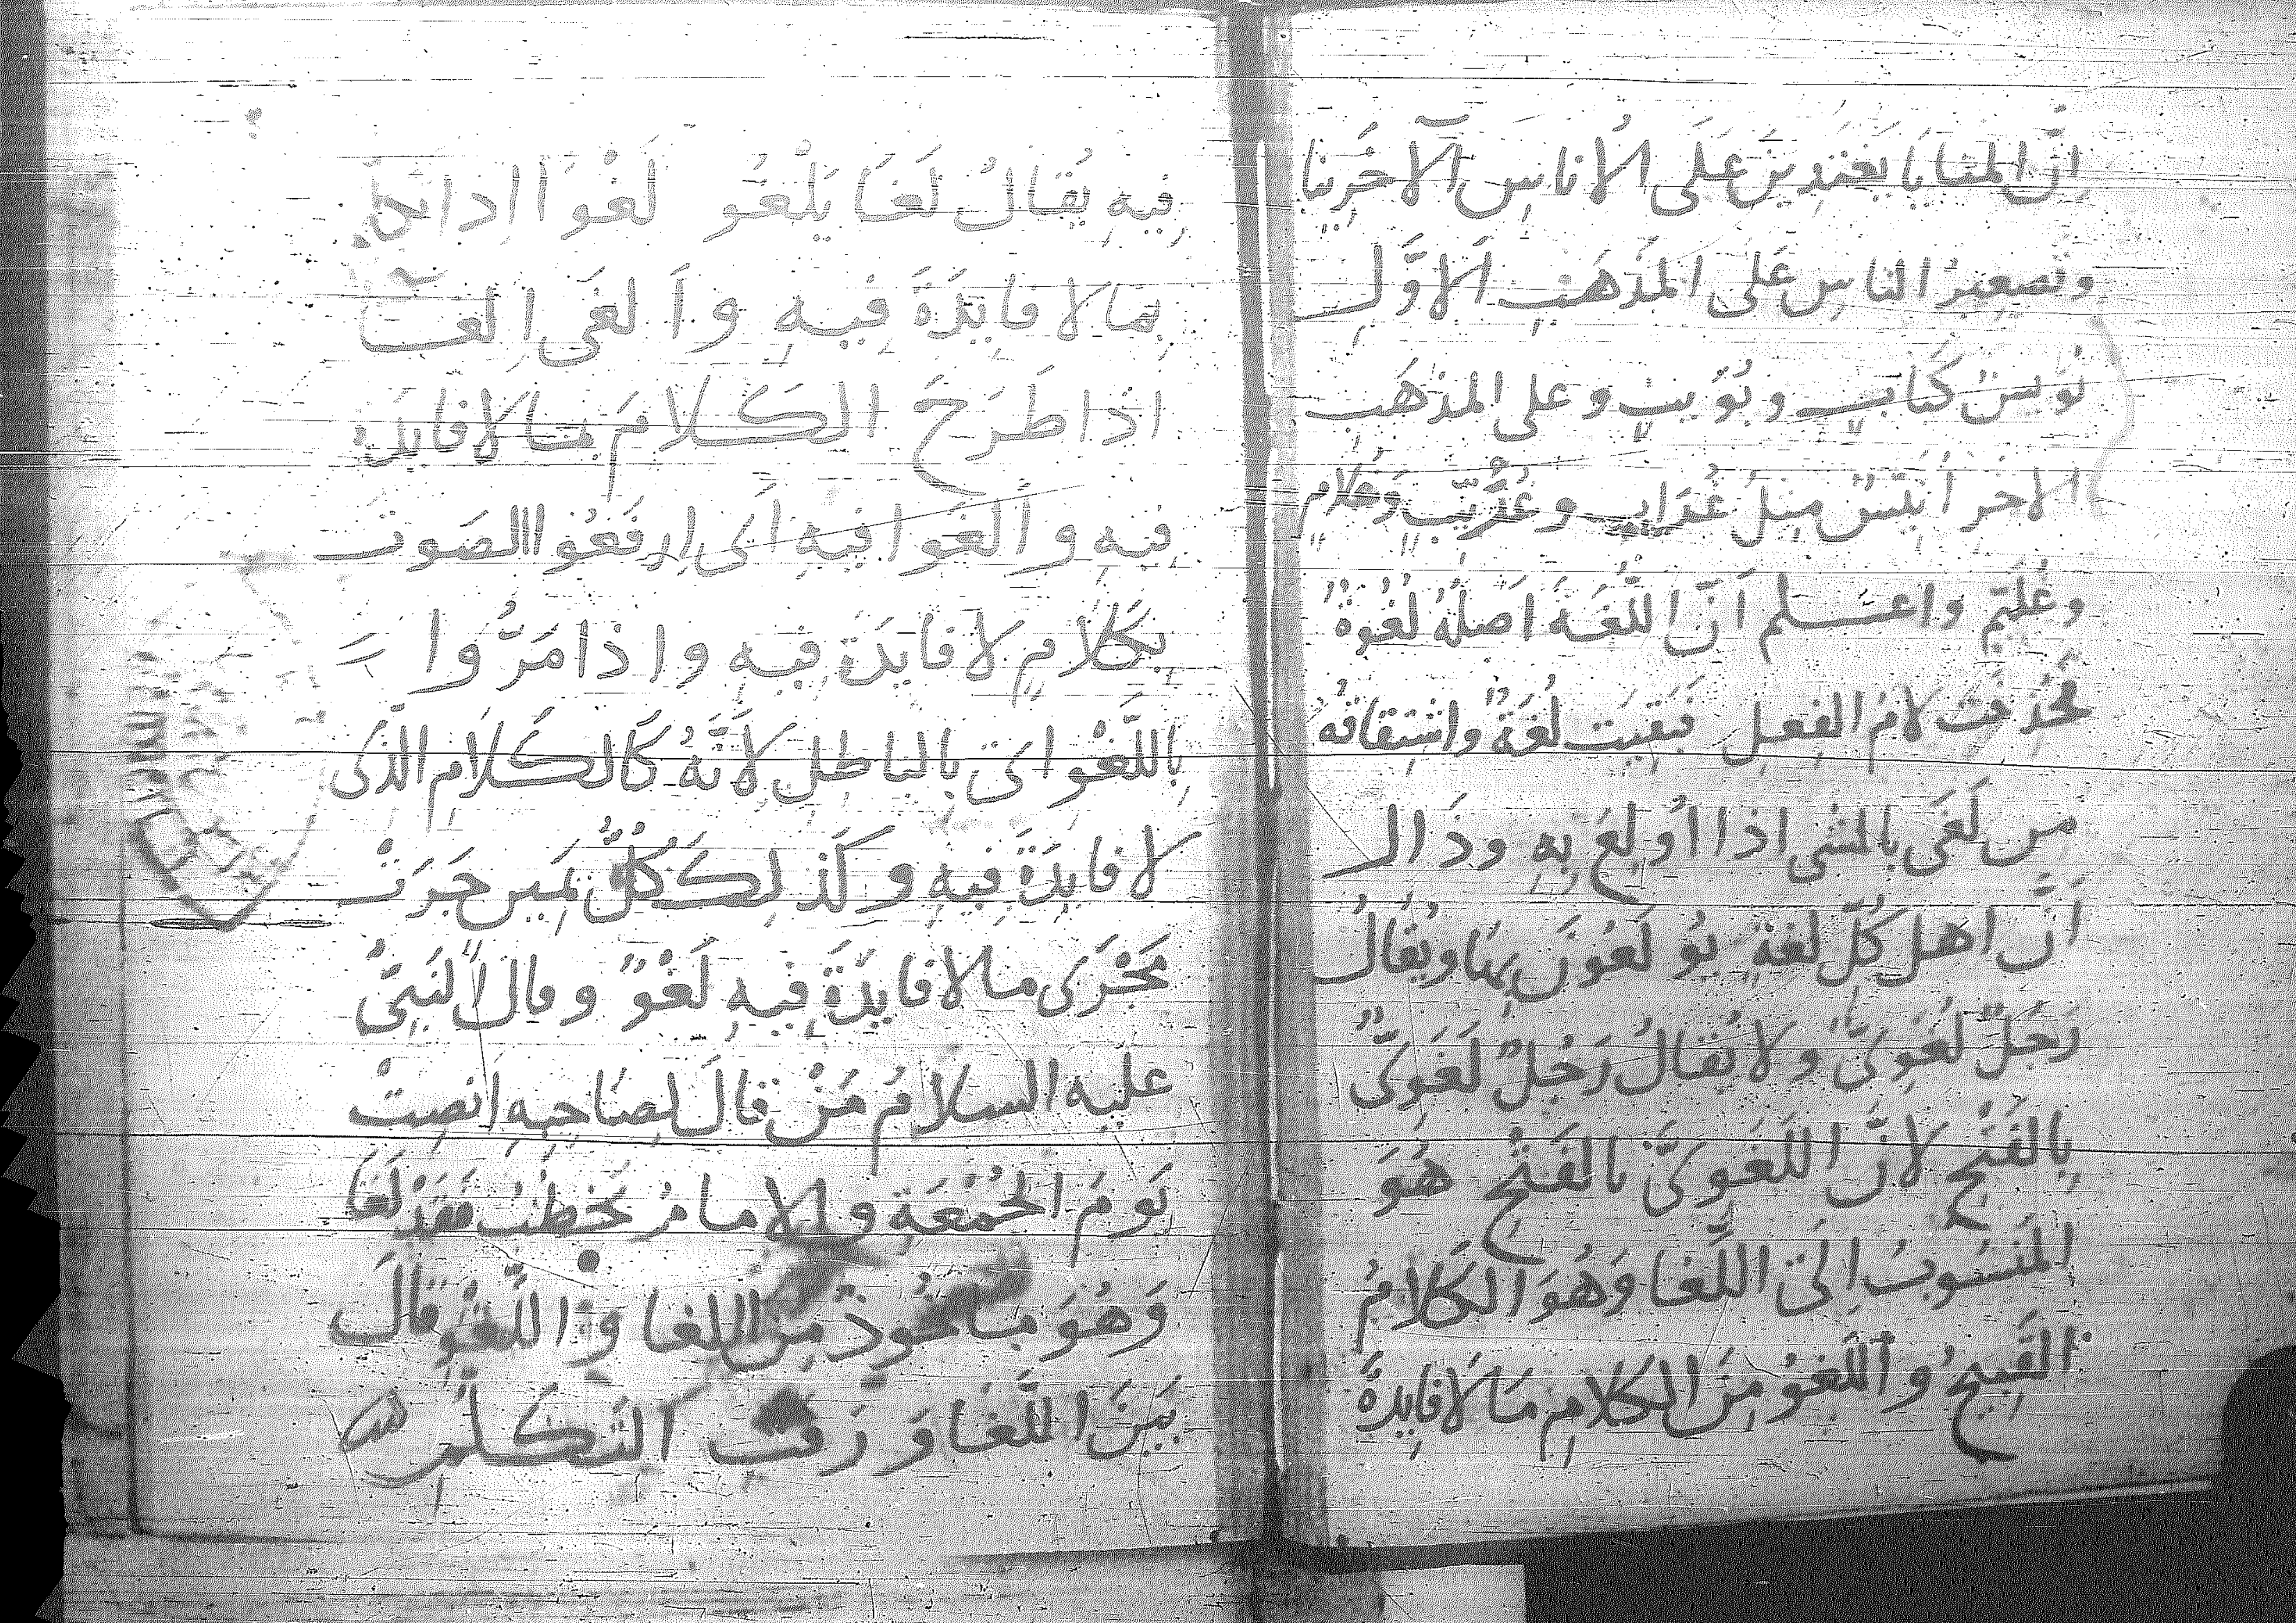 اِنَّ المنَايَا يَغتَدِينَ عَلَى الأناسِ الآخرِينا
وتصغيرُ الناسِ عَلى المذهَبِ الاَوَّلِ
نُوَيسٌ كَبابٍ وبُوَيبٍ وعلى المذهَبِ
الاخرِ أنَيّسٌ مِثلُ غُرَابٍ وغُرَيِّبٍ وَغُلامٍ
وغُلَيِّمٍ واعـلم اَنَّ اللُّغَةَ اَصلُهُ لُغُوَةٌ
فحُذِفَت لامُ الفِعلِ فبَقِيَت لُغَةٌ واشتِقاقُهُ
من لَغَى بالشى اذا اُولِعَ بِهِ وذَال
اَنَّ اهل كُلِّ لغةٍ يُولَعُونَ بِهَا ويُقَالُ
رَجُلٌ لُغَوِىٌّ ولا يُقالُ رَجُلٌ لَغَوِىٌّ
بِالفَتْحِ لانَّ اللَغَوِىَّ بالفَتْحِ هُوَ
المَنسُوبُ اِلَى اللَّغا وَهُوَ الكَلامُ
القَبِيحُ واللَغوُ مِنَ الكلامِ مَا لا فايدةَ
فِيهِ يُقَالُ لَغَا يَلْغُو لَغْوًا اِذا
بِمَا لا فايِدَةَ فِيهِ واَلغَى
اذا طَرَحَ الكلامَ ما لا فايدة
فِيهِ واَلغَوا فيهِ اَى اِرفَعُوا الصَوتَ
بِكَلامٍ لا فايدَةَ فِيهِ واذا مَرُّوا
بِاللَّغْوِ اىْ بالباطِلِ لاَنَّهُ كَالكَلامِ الذى
لا فايِدَةَ فِيهِ وكَذلِكَ كُلُّ يَمينٍ جَرَتْ
مَجْرَى ما لا فايِدَةَ فِيهِ لَغْوٌ وقال النَبِىُّ
عليه السلامُ مَنْ قالَ لِصَاحِبِهِ اَنصِتْ
يَومَ الجُمْعَةِ والامامُ يَخطُبُ فَقَدْ لَغَا
وَهُوَ ماخُوذٌ مِنَ اللغا واللَّغْوِ قالَ
بَينَ اللَّغا وَرَفَثِ التَكَلُّمِ